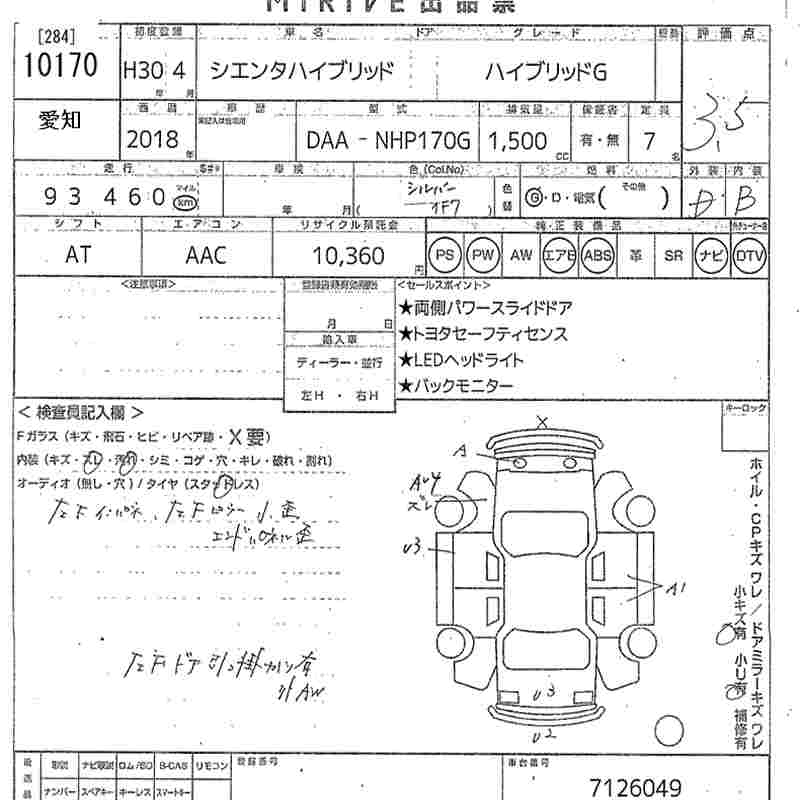 MIRIVE出品票
[284]
10170
愛知
初度登録 車名 ドア グレード 評価点
H30 4 シエンタハイブリッド ハイブリッドG 3.5
年 月
西暦 車歴 型式 排気量 保証書 定員
2018年 DAA - NHP170G 1,500cc 有・無 7名
走行 車検 色(Col.No) 燃料 外装 内装
93460 マイル km 年 月 シルバー 1F7 色替 G・D・電気( その他 ) D B
シフト エアコン リサイクル預託金 純正装備品
AT AAC 10,360円 PS PW AW エアB ABS 革 SR ナビ DTV
<注意事項> <セールスポイント>
月 日
★両側パワースライドドア
★トヨタセーフティセンス
★LEDヘッドライト
★バックモニター
輸入車
ディーラー・並行
左H・右H
<検査員記入欄> キーロック
Fガラス(キズ・飛石・ヒビ・リペア跡・X要)
内装(キズ・スレ・汚れ・シミ・コゲ・穴・キレ・破れ・割れ)
オーディオ(無し・穴)/タイヤ(スタッドレス)
左Fインパネ、左Fピラー小歪
エンドパネル歪
左Fドア引っ掛かり有
小AW
X
A
AU4
ズレ
U3
A1
U3
U2
ホイル・CPキズワレ/ドアミラーキズワレ
小キズ有 小U有 補修有
取説 ナビ取説 ロム/SD B-CAS リモコン 登録番号 車台番号
ナンバー スペアキー キーレス スマートキー 7126049